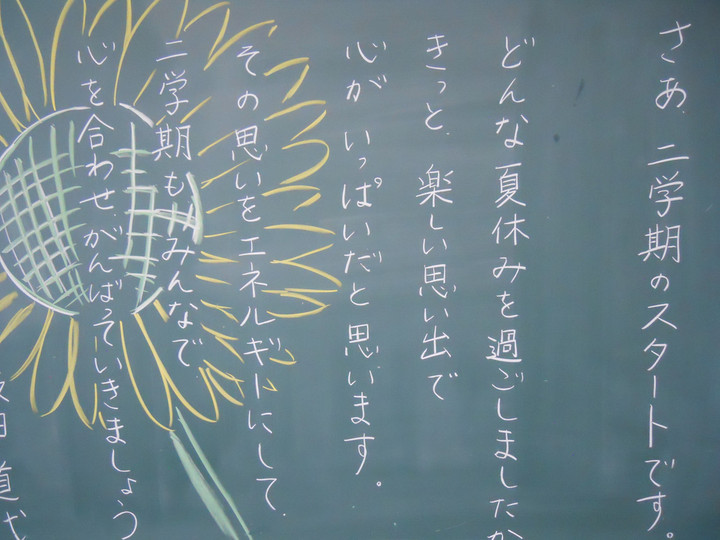 さあ、二学期のスタートです。
どんな夏休みを過ごしましたか
きっと、楽しい思い出で
心がいっぱいだと思います。
その思いをエネルギーにして、
二学期もみんなで
心を合わせ、がんばっていきましょう
田道代